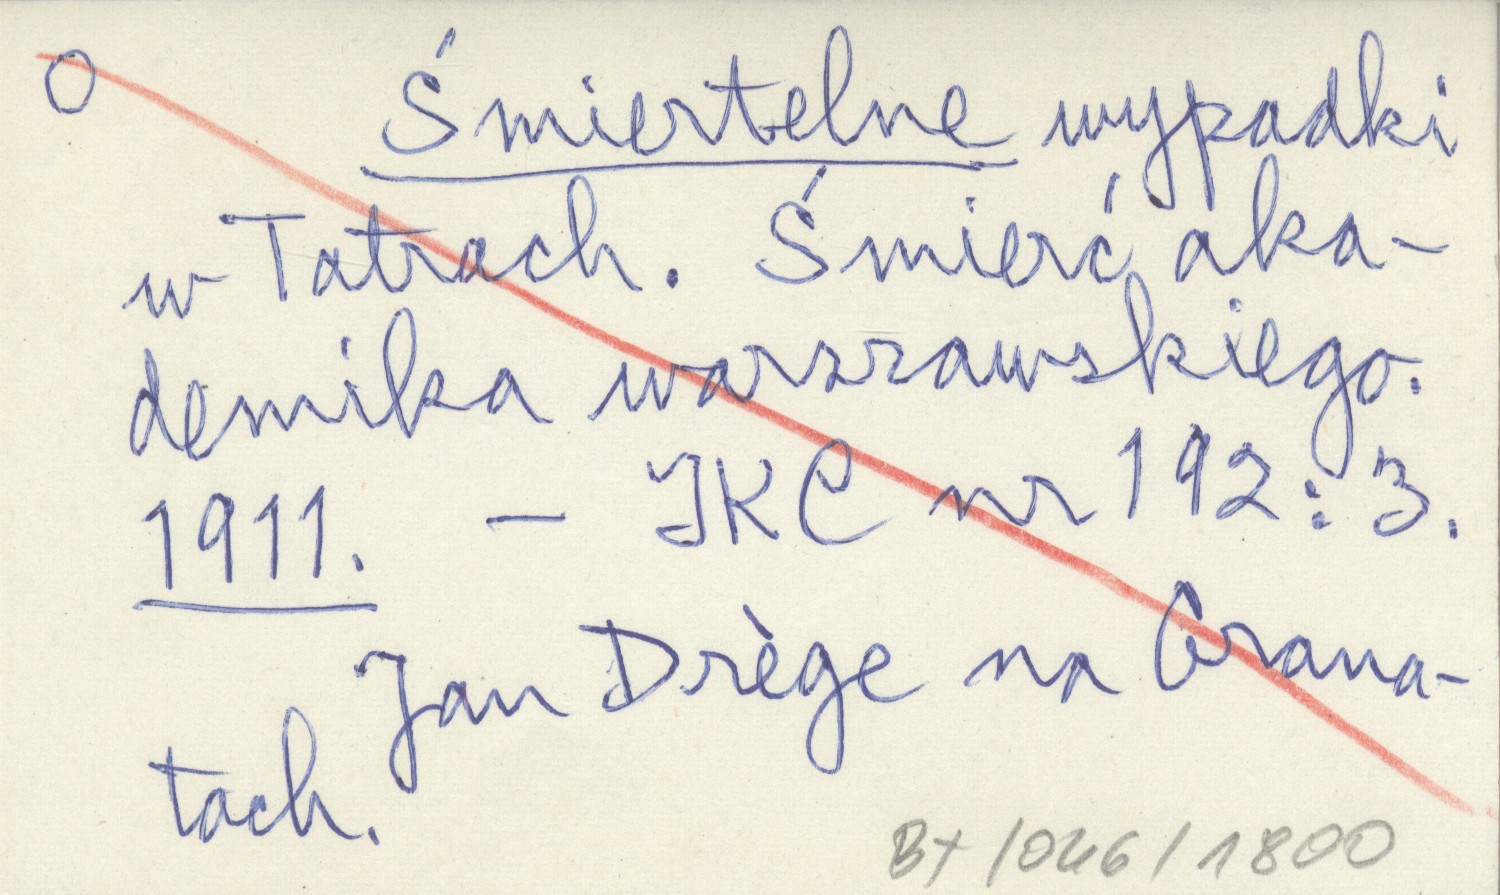 O Śmiertelne wypadki
w Tatrach. Śmierć aka-
demika warszawskiego.
1911. — IKC nr 192: 3.
Jan Drège na Grana-
tach.
BT/046/1800